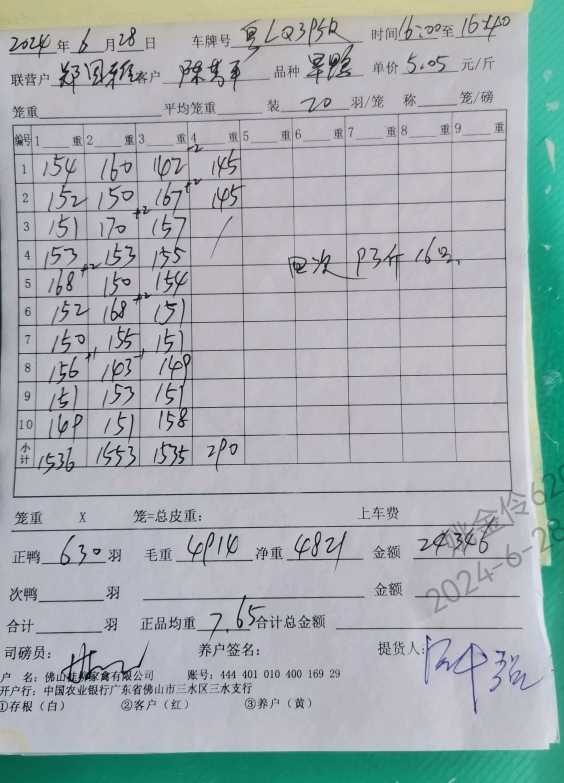 2024年6月28日 车牌号 粤LQ3P5R 时间16:00至16:40
联营户 客户 陈 平 品种 旱鸭 单价5.05元/斤
笼重 平均笼重 装20羽/笼 称 笼/磅
编号 1 重 2 重 3 重 4 重 5 重 6 重 7 重 8 重 9 重
1 154 160 142 +2 145
2 152 150 167 +2 145
3 151 170 +2 157 /
4 153 153 155
5 168 +2 150 154
6 152 168 +2 151
7 150 155 151
8 156 +1 143 -1 149
9 151 153 151
10 149 151 158
次 93斤 16
小计 1536 1553 1535 290
笼重 X 笼=总皮重: 上车费
正鸭 630 羽 毛重 4914 净重 4821 金额 24346
次鸭 羽 金额
合计 羽 正品均重 7.65 合计总金额
司磅员: 养户签名: 提货人:
户 名: 佛山 家禽有限公司 账号: 444 401 010 400 169 29
开户行: 中国农业银行广东省佛山市三水区三水支行
①存根(白) ②客户(红) ③养户(黄)
金伶620
2024-6-28